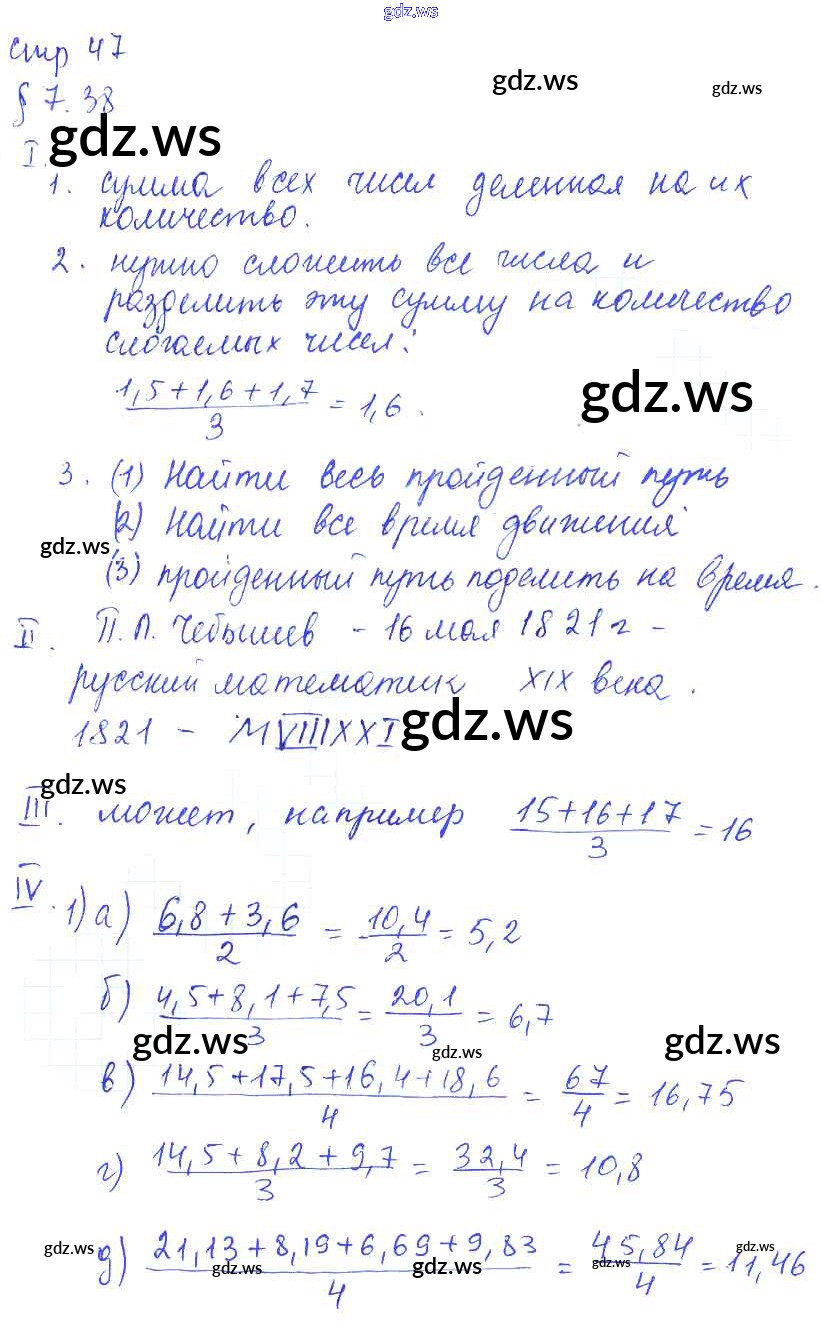 gdz.ws
стр 47
gdz.ws gdz.ws
§ 7.38
gdz.ws
I.
1. сумма всех чисел деленная на их
количество.
2. нужно сложить все числа и
разделить эту сумму на количество
слогаемых чисел:
(1,5+1,6+1,7)/3 = 1,6.
gdz.ws
3. (1) Найти весь пройденный путь
(2) Найти все время движения
gdz.ws
(3) пройденный путь поделить на время.
II. П.Л. Чебышев - 16 мая 1821 г -
русский математик XIX века.
1821 - MVIIIXXI
gdz.ws
gdz.ws
III. может, например (15+16+17)/3 = 16
IV. 1) а) (6,8+3,6)/2 = 10,4/2 = 5,2
б) (4,5+8,1+7,5)/3 = 20,1/3 = 6,7
gdz.ws gdz.ws gdz.ws
в) (14,5+17,5+16,4+18,6)/4 = 67/4 = 16,75
г) (14,5+8,2+9,7)/3 = 32,4/3 = 10,8
gdz.ws gdz.ws
д) (21,13+8,19+6,69+9,83)/4 = 45,84/4 = 11,46
gdz.ws gdz.ws gdz.ws